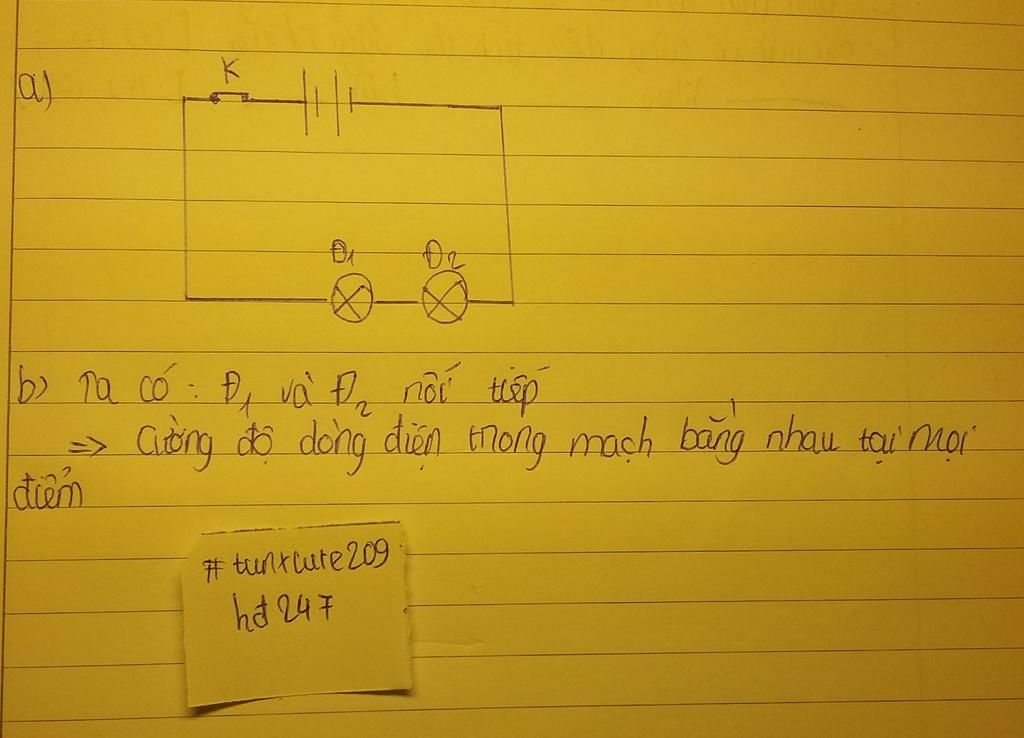 a)
K
Đ1 Đ2
b) Ta có : Đ1 và Đ2 nối tiếp
=> Cường độ dòng điện trong mạch bằng nhau tại mọi
điểm
#tunxcute209
hđ247